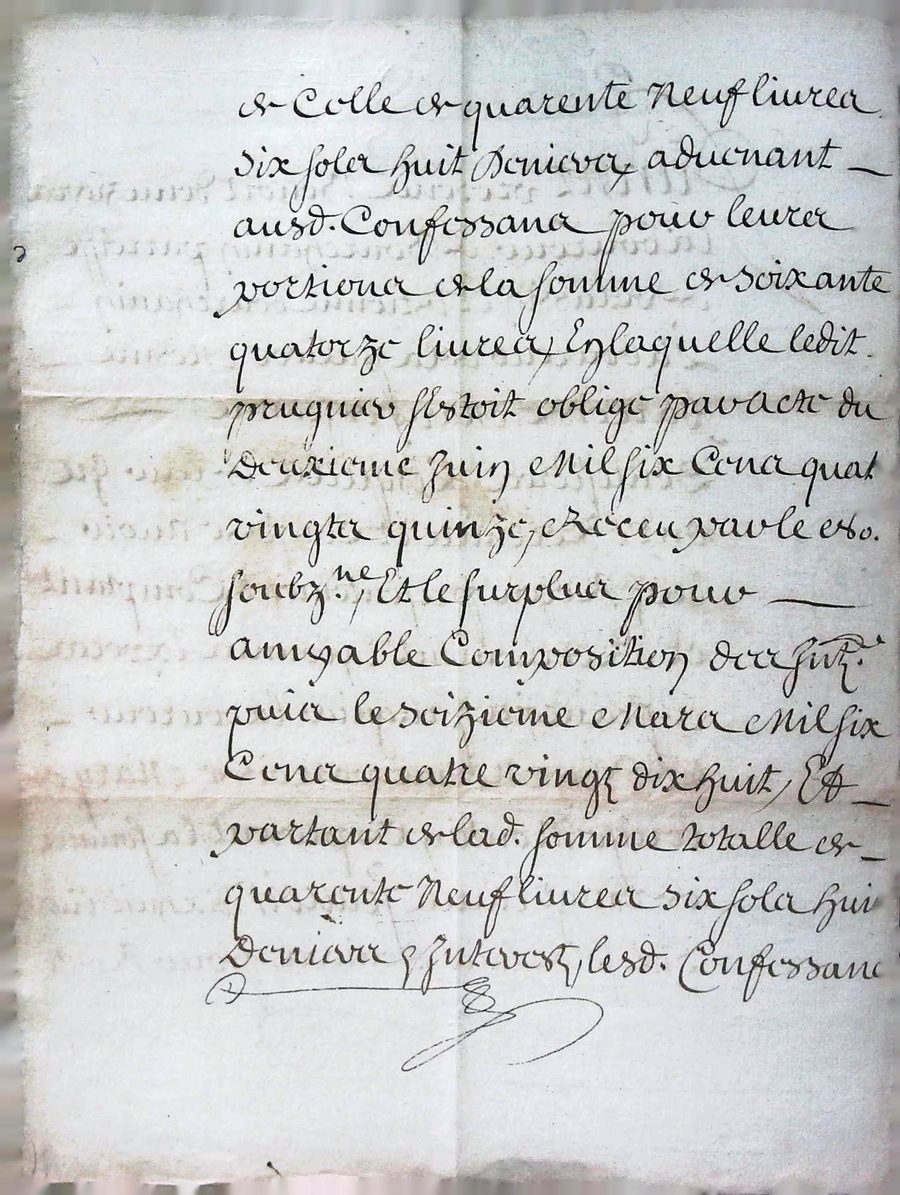 de Celle de quarente Neuf liures
six sols huit Deniers, aduenant
ausd. Confessans pour leurs
portions de la somme de soixante
quatorze liures, En laquelle ledit
pruguier s'estoit obligé par acte du
Deuxieme Juin Mil six Cens quat
vingts quinze, Receu par le no.
soubz.né, Et le surplus pour
amyable Composition des
puis le seizieme Mars Mil six
Cens quatre vingt dix huit, Et
partant de lad. somme totalle de
quarente Neuf liures six sols hui
Deniers & Interest, lesd. Confessans